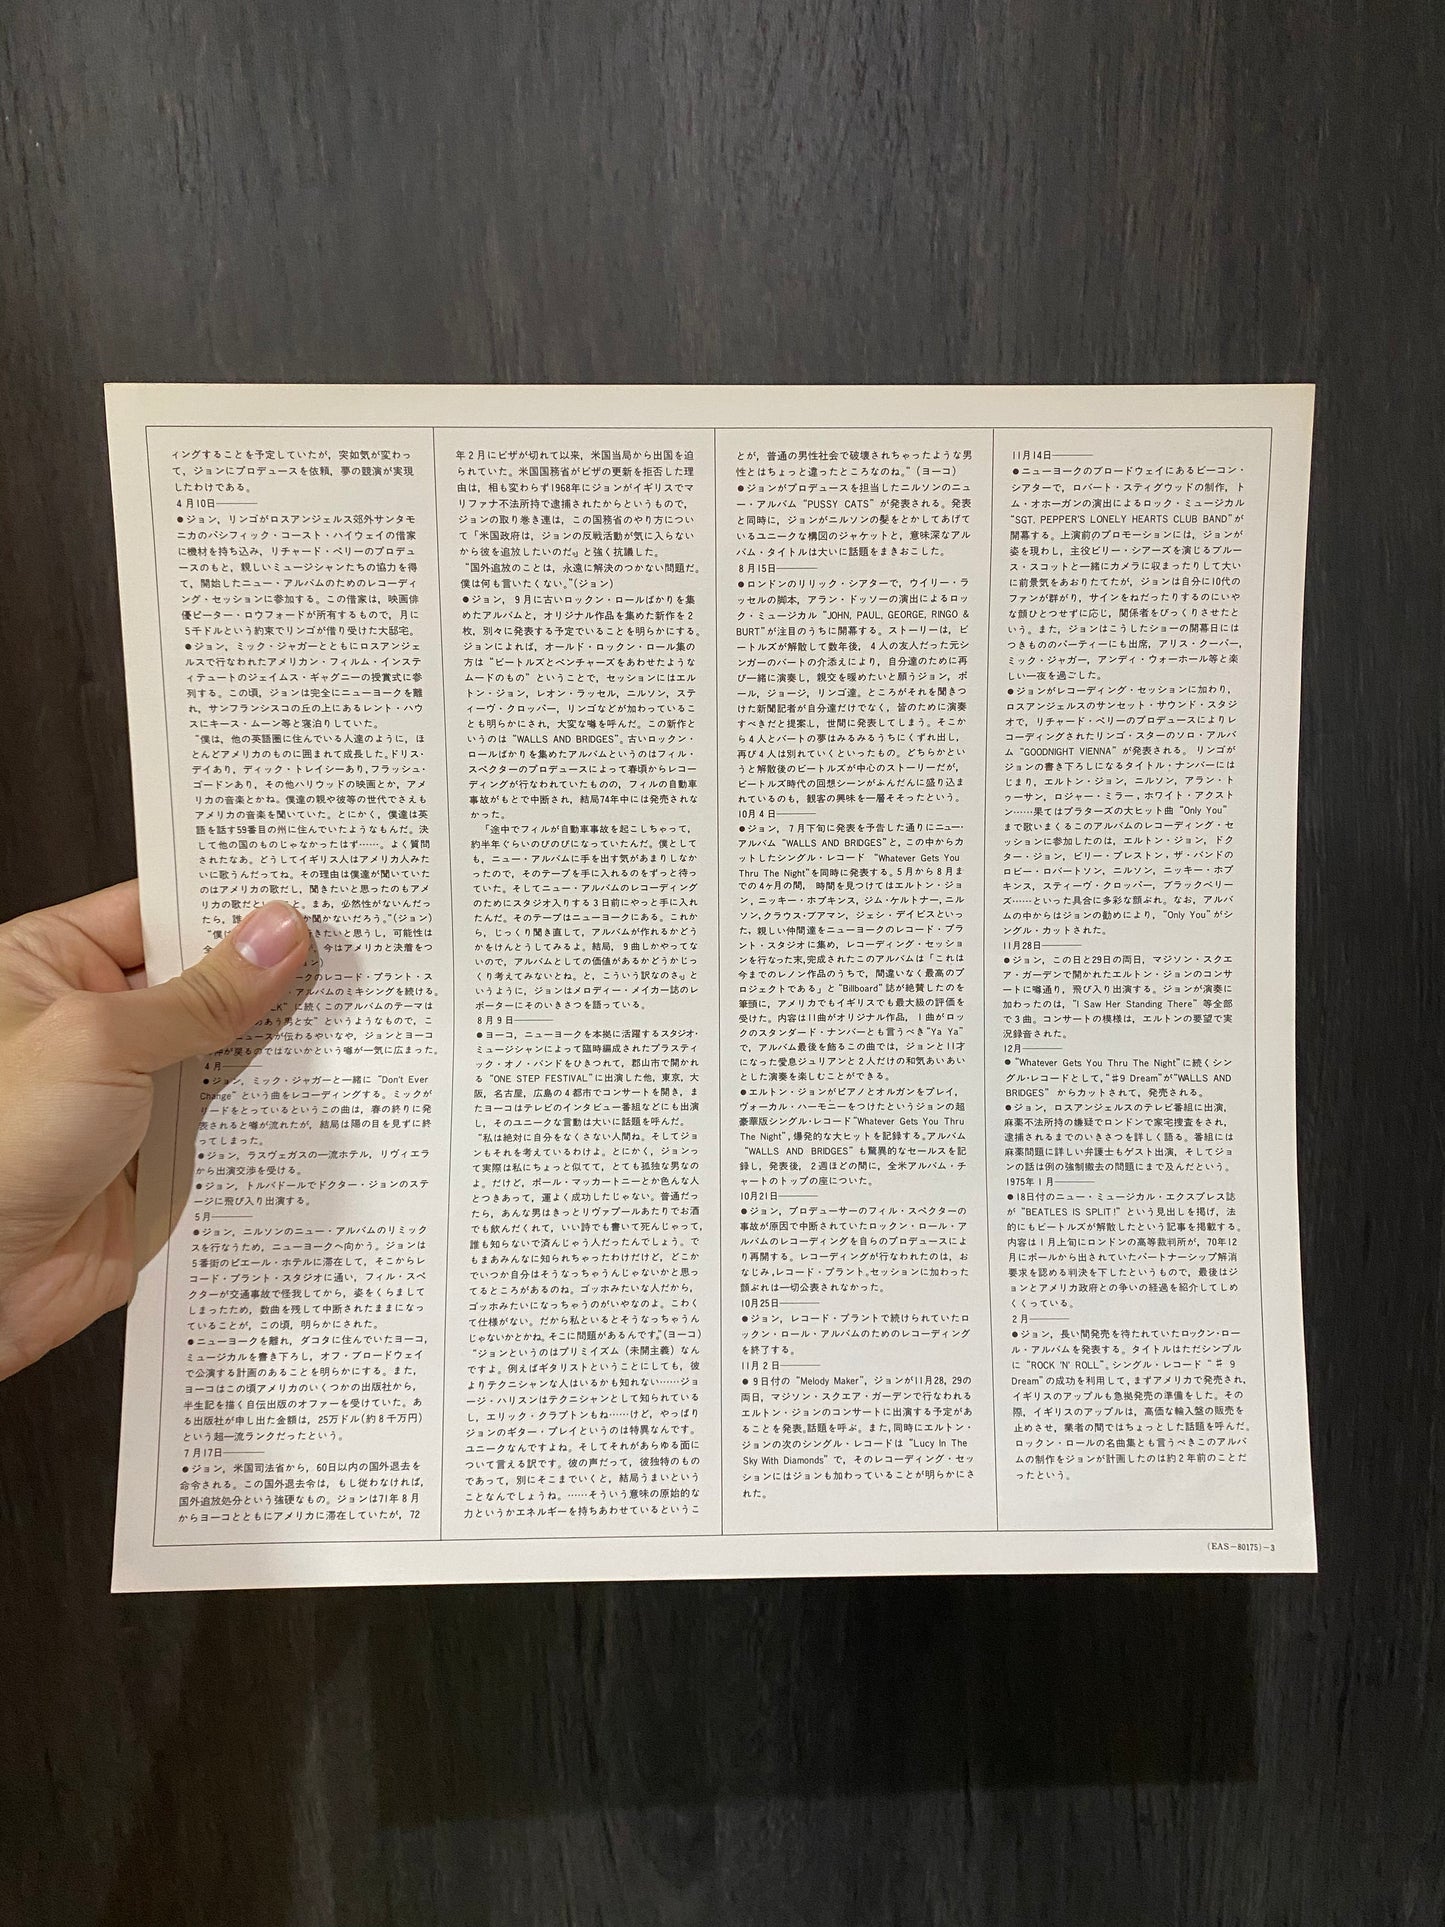 ィングすることを予定していたが，突如気が変わっ
て，ジョンにプロデュースを依頼，夢の競演が実現
したわけである。
4月10日―――
●ジョン，リンゴがロスアンジェルス郊外サンタモ
ニカのパシフィック・コースト・ハイウェイの借家
に機材を持ち込み，リチャード・ペリーのプロデュ
ースのもと，親しいミュージシャンたちの協力を得
て，開始したニュー・アルバムのためのレコーディ
ング・セッションに参加する。この借家は，映画俳
優ピーター・ロウフォードが所有するもので，月に
5千ドルという約束でリンゴが借り受けた大邸宅。
●ジョン，ミック・ジャガーとともにロスアンジェ
ルスで行なわれたアメリカン・フィルム・インステ
ィテュートのジェイムス・ギャグニーの授賞式に参
列する。この頃，ジョンは完全にニューヨークを離
れ，サンフランシスコの丘の上にあるレント・ハウ
スにキース・ムーン等と寝泊りしていた。
“僕は，他の英語圏に住んでいる人達のように，ほ
とんどアメリカのものに囲まれて成長した。ドリス・
デイあり，ディック・トレイシーあり，フラッシュ・
ゴードンあり，その他ハリウッドの映画とか，アメ
リカの音楽とかね。僕達の親や彼等の世代でさえも
アメリカの音楽を聞いていた。とにかく，僕達は英
語を話す59番目の州に住んでいたようなもんだ。決
して他の国のものじゃなかったはず……。よく質問
されたなあ。どうしてイギリス人はアメリカ人みた
いに歌うんだってね。その理由は僕達が聞いていた
のはアメリカの歌だし，聞きたいと思ったのもアメ
リカの歌だと　　　と。まあ，必然性がないんだっ
たら，誰　　　　か聞かないだろう。”(ジョン)
“僕　　　　　　きたいと思うし，可能性は
全　　　　　　，今はアメリカと決着をつ
　　　　　ン)
　　　ークのレコード・プラント・ス
　　　・アルバムのミキシングを続ける。
　　　LK” に続くこのアルバムのテーマは
　　　のあう男と女” というようなもので，こ
　　ニュースが伝わるやいなや，ジョンとヨーコ
　仲が戻るのではないかという噂が一気に広まった。
4月―――
●ジョン，ミック・ジャガーと一緒に “Don't Ever
Change” という曲をレコーディングする。ミックが
リードをとっているというこの曲は，春の終りに発
表されると噂が流れたが，結局は陽の目を見ずに終
ってしまった。
●ジョン，ラスヴェガスの一流ホテル，リヴィエラ
から出演交渉を受ける。
●ジョン，トルバドールでドクター・ジョンのステ
ージに飛び入り出演する。
5月―――
●ジョン，ニルソンのニュー・アルバムのリミック
スを行なうため，ニューヨークへ向かう。ジョンは
5番街のピエール・ホテルに滞在して，そこからレ
コード・プラント・スタジオに通い，フィル・スペ
クターが交通事故で怪我してから，姿をくらまして
しまったため，数曲を残して中断されたままになっ
ていることが，この頃，明らかにされた。
●ニューヨークを離れ，ダコタに住んでいたヨーコ，
ミュージカルを書き下ろし，オフ・ブロードウェイ
で公演する計画のあることを明らかにする。また，
ヨーコはこの頃アメリカのいくつかの出版社から，
半生記を描く自伝出版のオファーを受けていた。あ
る出版社が申し出た金額は，25万ドル(約8千万円)
という超一流ランクだったという。
7月17日―――
●ジョン，米国司法省から，60日以内の国外退去を
命令される。この国外退去令は，もし従わなければ，
国外追放処分という強硬なもの。ジョンは71年8月
からヨーコとともにアメリカに滞在していたが，72
年2月にビザが切れて以来，米国当局から出国を迫
られていた。米国国務省がビザの更新を拒否した理
由は，相も変わらず1968年にジョンがイギリスでマ
リファナ不法所持で逮捕されたからというもので，
ジョンの取り巻き連は，この国務省のやり方につい
て「米国政府は，ジョンの反戦活動が気に入らない
から彼を追放したいのだ。」と強く抗議した。
“国外追放のことは，永遠に解決のつかない問題だ。
僕は何も言いたくない。”(ジョン)
●ジョン，9月に古いロックン・ロールばかりを集
めたアルバムと，オリジナル作品を集めた新作を2
枚，別々に発表する予定でいることを明らかにする。
ジョンによれば，オールド・ロックン・ロール集の
方は “ビートルズとベンチャーズをあわせたような
ムードのもの” ということで，セッションにはエル
トン・ジョン，レオン・ラッセル，ニルソン，ステ
ィーヴ・クロッパー，リンゴなどが加わっているこ
とも明らかにされ，大変な噂を呼んだ。この新作と
いうのは “WALLS AND BRIDGES”。古いロックン・
ロールばかりを集めたアルバムというのはフィル・
スペクターのプロデュースによって春頃からレコー
ディングが行なわれていたものの，フィルの自動車
事故がもとで中断され，結局74年中には発売されな
かった。
「途中でフィルが自動車事故を起こしちゃって，
約半年ぐらいのびのびになっていたんだ。僕として
も，ニュー・アルバムに手を出す気があまりしなか
ったので，そのテープを手に入れるのをずっと待っ
ていた。そしてニュー・アルバムのレコーディング
のためにスタジオ入りする3日前にやっと手に入れ
たんだ。そのテープはニューヨークにある。これか
ら，じっくり聞き直して，アルバムが作れるかどう
かをけんとうしてみるよ。結局，9曲しかやってな
いので，アルバムとしての価値があるかどうかじっ
くり考えてみないとね。と，こういう訳なのさ。」と
いうように，ジョンはメロディー・メイカー誌のレ
ポーターにそのいきさつを語っている。
8月9日―――
●ヨーコ，ニューヨークを本拠に活躍するスタジオ・
ミュージシャンによって臨時編成されたプラスティ
ック・オノ・バンドをひきつれて，郡山市で開かれ
る “ONE STEP FESTIVAL” に出演した他，東京，大
阪，名古屋，広島の4都市でコンサートを開き，ま
たヨーコはテレビのインタビュー番組などにも出演
し，そのユニークな言動は大いに話題を呼んだ。
“私は絶対に自分をなくさない人間ね。そしてジョ
ンもそれを考えているわけよ。とにかく，ジョンっ
て実際は私にちょっと似てて，とても孤独な男なの
よ。だけど，ポール・マッカートニーとか色んな人
とつきあって，運よく成功したじゃない。普通だっ
たら，あんな男はきっとリヴァプールあたりでお酒
でも飲んだくれて，いい詩でも書いて死んじゃって，
誰も知らないで済んじゃう人だったんでしょう。で
もまあみんなに知られちゃったわけだけど，どこか
でいつか自分はそうなっちゃうんじゃないかと思っ
てるところがあるのね。ゴッホみたいな人だから，
ゴッホみたいになっちゃうのがいやなのよ。こわく
て仕様がない。だから私といるとそうなっちゃうん
じゃないかとかね。そこに問題があるんです。”(ヨーコ)
“ジョンというのはプリミイズム（未開主義）なん
ですよ。例えばギタリストということにしても，彼
よりテクニシャンな人はいるかも知れない……ジョ
ージ・ハリスンはテクニシャンとして知られている
し，エリック・クラプトンもね……けど，やっぱり
ジョンのギター・プレイというのは特異なんです。
ユニークなんですよね。そしてそれがあらゆる面に
ついて言える訳です。彼の声だって，彼独特のもの
であって，別にそこまでいくと，結局うまいという
ことなんでしょうね。……そういう意味の原始的な
力というかエネルギーを持ちあわせているというこ
とが，普通の男性社会で破壊されちゃったような男
性とはちょっと違ったところなのね。”(ヨーコ)
●ジョンがプロデュースを担当したニルソンのニュ
ー・アルバム “PUSSY CATS” が発表される。発表
と同時に，ジョンがニルソンの髪をとかしてあげて
いるユニークな構図のジャケットと，意味深なアル
バム・タイトルは大いに話題をまきおこした。
8月15日―――
●ロンドンのリリック・シアターで，ウイリー・ラ
ッセルの脚本，アラン・ドッソーの演出によるロッ
ク・ミュージカル “JOHN, PAUL, GEORGE, RINGO &
BURT” が注目のうちに開幕する。ストーリーは，ビ
ートルズが解散して数年後，4人の友人だった元シ
ンガーのバートの介添えにより，自分達のために再
び一緒に演奏し，親交を暖めたいと願うジョン，ポ
ール，ジョージ，リンゴ達。ところがそれを聞きつ
けた新聞記者が自分達だけでなく，皆のために演奏
すべきだと提案し，世間に発表してしまう。そこか
ら4人とバートの夢はみるみるうちにくずれ出し，
再び4人は別れていくといったもの。どちらかとい
うと解散後のビートルズが中心のストーリーだが，
ビートルズ時代の回想シーンがふんだんに盛り込ま
れているのも，観客の興味を一層そそったという。
10月4日―――
●ジョン，7月下旬に発表を予告した通りにニュー・
アルバム “WALLS AND BRIDGES” と，この中からカ
ットしたシングル・レコード “Whatever Gets You
Thru The Night” を同時に発表する。5月から8月ま
での4ヶ月の間，時間を見つけてはエルトン・ジョ
ン，ニッキー・ホプキンス，ジム・ケルトナー，ニル
ソン，クラウス・ブアマン，ジェシ・デイビスといっ
た，親しい仲間達をニューヨークのレコード・プラ
ント・スタジオに集め，レコーディング・セッショ
ンを行なった末，完成されたこのアルバムは「これは
今までのレノン作品のうちで，間違いなく最高のプ
ロジェクトである」と “Billboard” 誌が絶賛したのを
筆頭に，アメリカでもイギリスでも最大級の評価を
受けた。内容は11曲がオリジナル作品，1曲がロッ
クのスタンダード・ナンバーとも言うべき “Ya Ya”
で，アルバム最後を飾るこの曲では，ジョンと11才
になった愛息ジュリアンと2人だけの和気あいあい
とした演奏を楽しむことができる。
●エルトン・ジョンがピアノとオルガンをプレイ，
ヴォーカル・ハーモニーをつけたというジョンの超
豪華版シングル・レコード “Whatever Gets You Thru
The Night”，爆発的な大ヒットを記録する。アルバム
“WALLS AND BRIDGES” も驚異的なセールスを記
録し，発表後，2週ほどの間に，全米アルバム・チ
ャートのトップの座についた。
10月21日―――
●ジョン，プロデューサーのフィル・スペクターの
事故が原因で中断されていたロックン・ロール・ア
ルバムのレコーディングを自らのプロデュースによ
り再開する。レコーディングが行なわれたのは，お
なじみ，レコード・プラント。セッションに加わった
顔ぶれは一切公表されなかった。
10月25日―――
●ジョン，レコード・プラントで続けられていたロ
ックン・ロール・アルバムのためのレコーディング
を終了する。
11月2日―――
●9日付の “Melody Maker”，ジョンが11月28，29の
両日，マジソン・スクエア・ガーデンで行なわれる
エルトン・ジョンのコンサートに出演する予定があ
ることを発表。話題を呼ぶ。また，同時にエルトン・
ジョンの次のシングル・レコードは “Lucy In The
Sky With Diamonds” で，そのレコーディング・セッ
ションにはジョンも加わっていることが明らかにさ
れた。
11月14日―――
●ニューヨークのブロードウェイにあるビーコン・
シアターで，ロバート・スティグウッドの制作，ト
ム・オホーガンの演出によるロック・ミュージカル
“SGT. PEPPER'S LONELY HEARTS CLUB BAND” が
開幕する。上演前のプロモーションには，ジョンが
姿を現わし，主役ビリー・シアーズを演じるブルー
ス・スコットと一緒にカメラに収まったりして大い
に前景気をあおりたてたが，ジョンは自分に10代の
ファンが群がり，サインをねだったりするのにいや
な顔ひとつせずに応じ，関係者をびっくりさせたと
いう。また，ジョンはこうしたショーの開幕日には
つきもののパーティーにも出席，アリス・クーパー，
ミック・ジャガー，アンディ・ウォーホール等と楽
しい一夜を過ごした。
●ジョンがレコーディング・セッションに加わり，
ロスアンジェルスのサンセット・サウンド・スタジ
オで，リチャード・ペリーのプロデュースによりレ
コーディングされたリンゴ・スターのソロ・アルバ
ム “GOODNIGHT VIENNA” が発表される。リンゴが
ジョンの書き下ろしになるタイトル・ナンバーには
じまり，エルトン・ジョン，ニルソン，アラン・ト
ゥーサン，ロジャー・ミラー，ホワイト・アクスト
ン……果てはプラターズの大ヒット曲 “Only You”
まで歌いまくるこのアルバムのレコーディング・セ
ッションに参加したのは，エルトン・ジョン，ドク
ター・ジョン，ビリー・プレストン，ザ・バンドの
ロビー・ロバートソン，ニルソン，ニッキー・ホプ
キンス，スティーヴ・クロッパー，ブラックベリー
ズ……といった具合に多彩な顔ぶれ。なお，アルバ
ムの中からはジョンの勧めにより，“Only You” がシ
ングル・カットされた。
11月28日―――
●ジョン，この日と29日の両日，マジソン・スクエ
ア・ガーデンで開かれたエルトン・ジョンのコンサ
ートに噂通り，飛び入り出演する。ジョンが演奏に
加わったのは，“I Saw Her Standing There” 等全部
で3曲。コンサートの模様は，エルトンの要望で実
況録音された。
12月―――
●“Whatever Gets You Thru The Night” に続くシン
グル・レコードとして，“♯9 Dream” が “WALLS AND
BRIDGES” からカットされて，発売される。
●ジョン，ロスアンジェルスのテレビ番組に出演，
麻薬不法所持の嫌疑でロンドンで家宅捜査をされ，
逮捕されるまでのいきさつを詳しく語る。番組には
麻薬問題に詳しい弁護士もゲスト出演，そしてジョ
ンの話は例の強制撤去の問題にまで及んだという。
1975年1月―――
●18日付のニュー・ミュージカル・エクスプレス誌
が “BEATLES IS SPLIT!” という見出しを掲げ，法
的にもビートルズが解散したという記事を掲載する。
内容は1月上旬にロンドンの高等裁判所が，70年12
月にポールから出されていたパートナーシップ解消
要求を認める判決を下したというもので，最後はジ
ョンとアメリカ政府との争いの経過を紹介してしめ
くくっている。
2月―――
●ジョン，長い間発売を待たれていたロックン・ロー
ル・アルバムを発表する。タイトルはただシンプル
に “ROCK 'N' ROLL”。シングル・レコード “♯9
Dream” の成功を利用して，まずアメリカで発売され，
イギリスのアップルも急拠発売の準備をした。その
際，イギリスのアップルは，高価な輸入盤の販売を
止めさせ，業者の間ではちょっとした話題を呼んだ。
ロックン・ロールの名曲集とも言うべきこのアルバ
ムの制作をジョンが計画したのは約2年前のことだ
ったという。
(EAS－80175)－3